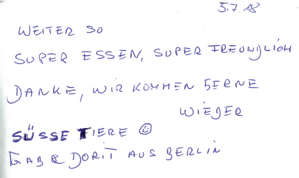 5.7.18
WEITER SO
SUPER ESSEN, SUPER FREUNDLICH
DANKE, WIR KOMMEN GERNE
WIEDER
SÜSSE TIERE ☺
GABI & DORIT AUS BERLIN